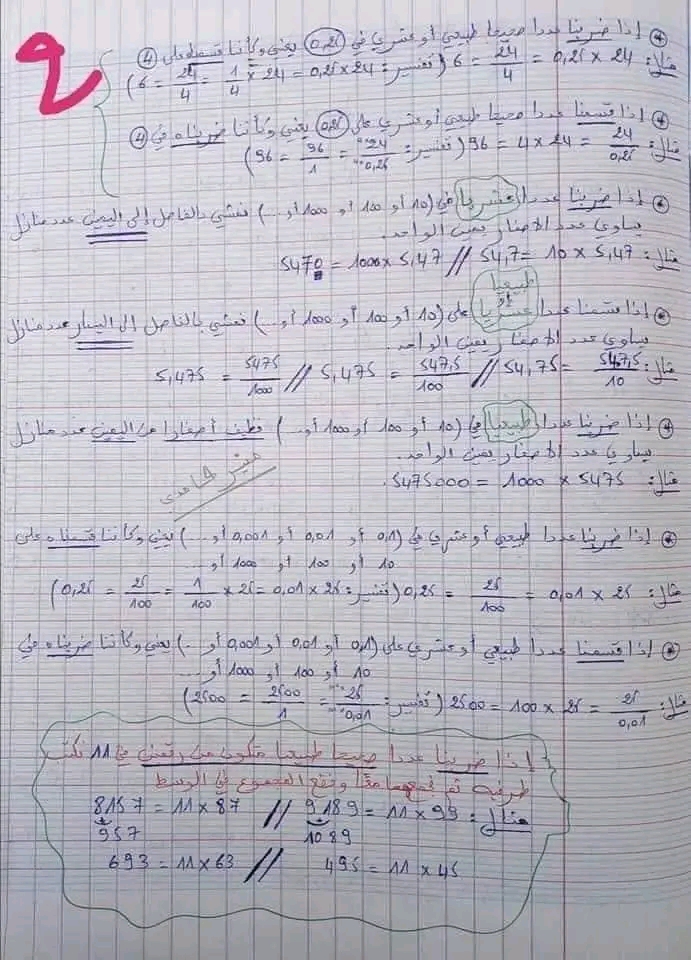 2
* إذا ضربنا عددا صحيحا طبيعي أو عشري في 0,25 يعني وكأننا قسمناه على 4
مثال: 24 × 0,25 = 24/4 = 6 (تفسير: 24 × 0,25 = 24 × 1/4 = 24/4 = 6)
* إذا قسمنا عددا صحيحا طبيعي أو عشري على 0,25 يعني وكأننا ضربناه في 4
مثال: 24/0,25 = 24 × 4 = 96 (تفسير: 24/0,25 = 96/1 = 96)
* إذا ضربنا عددا عشريا في (10 أو 100 أو 1000 أو...) نمشي بالفاصل إلى اليمين عدد منازل
يساوي عدد الأصفار يمين الواحد.
مثال: 5,47 × 10 = 54,7 // 5,47 × 1000 = 5470
طبيعيا
أو
* إذا قسمنا عددا عشريا على (10 أو 100 أو 1000 أو...) نمشي بالفاصل إلى اليسار عدد منازل
يساوي عدد الأصفار يمين الواحد.
مثال: 547,5/10 = 54,75 // 547,5/100 = 5,475 // 5475/1000 = 5,475
* إذا ضربنا عددا طبيعيا في (10 أو 100 أو 1000 أو...) نضيف أصفارا من اليمين عدد منازل
يساوي عدد الأصفار يمين الواحد.
مثال: 5475 × 1000 = 5475000.
* إذا ضربنا عددا طبيعي أو عشري في (0,1 أو 0,01 أو 0,001 أو...) يعني وكأننا قسمناه على
10 أو 100 أو 1000 أو...
مثال: 25 × 0,01 = 25/100 = 0,25 (تفسير: 25 × 0,01 = 25 × 1/100 = 25/100 = 0,25)
* إذا قسمنا عددا طبيعي أو عشري على (0,1 أو 0,01 أو 0,001 أو...) يعني وكأننا ضربناه في
10 أو 100 أو 1000 أو...
مثال: 25/0,01 = 25 × 100 = 2500 (تفسير: 25/0,01 = 2500/1 = 2500)
إذا ضربنا عددا صحيحا طبيعيا متكون من رقمين في 11 نكتب
طرفيه ثم نجمعهما معًا ونضع المجموع في الوسط
مثال: 99 × 11 = 9189 // 87 × 11 = 8157
1089 957
45 × 11 = 495 // 63 × 11 = 693